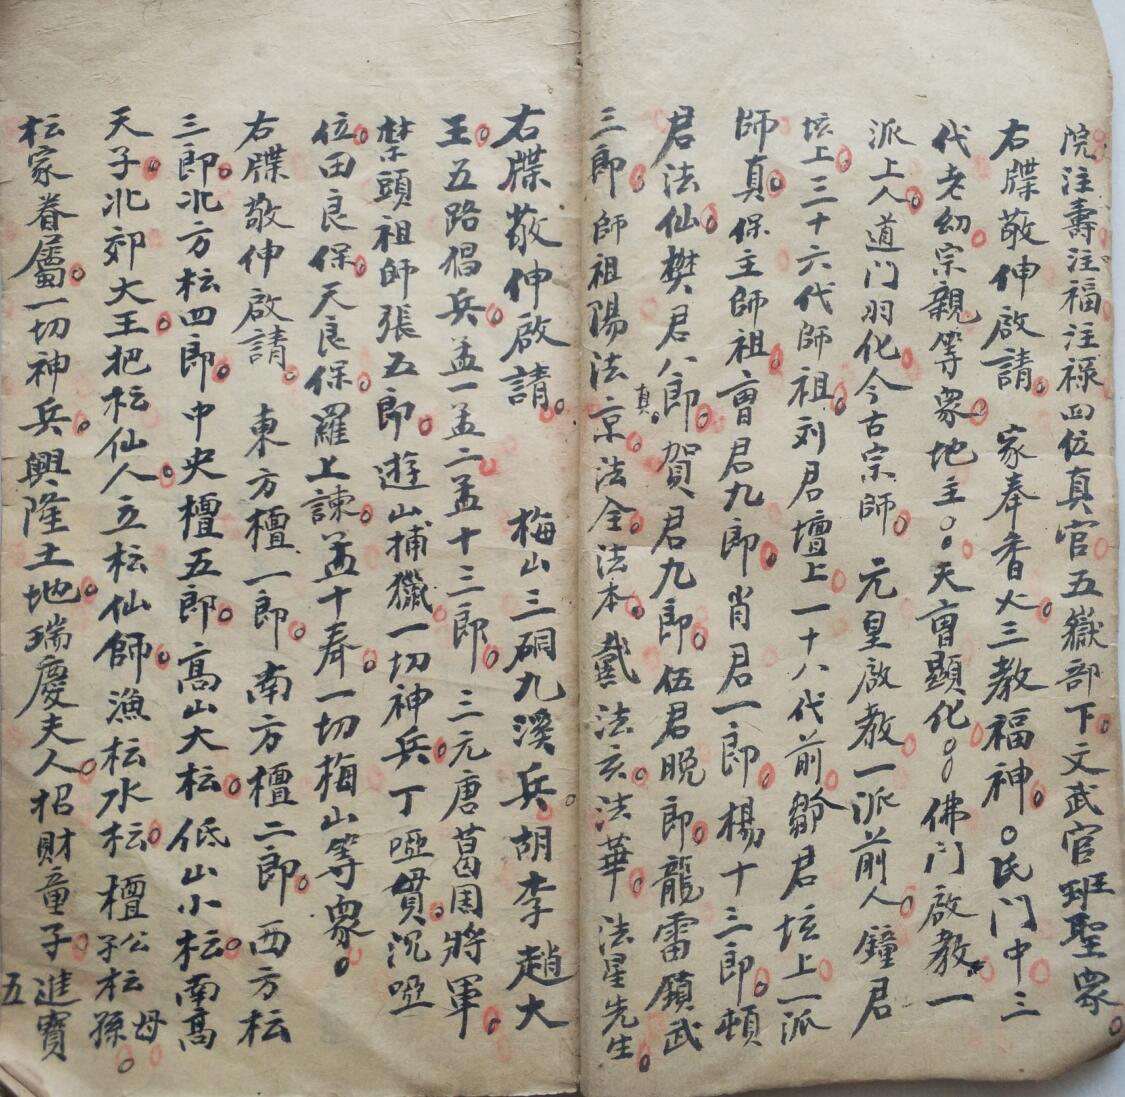 院注壽注福注祿四位真官五嶽部下文武官班聖衆
右牒敬伸啟請 家奉香火三教福神〇氏門中三
代老幼宗親等衆地主〇〇天曺顯化〇〇佛門啟教一
派上人道門羽化今古宗師 元皇啟教一派前人鐘君
坛上三十六代師祖刘君壇上一十八代前鄒君坛上一派
師真保主師祖曺君九郎肖君一郎楊十三郎頓
君法仙樊君八郎賀君九郎伍君晚郎龍雷鎮武
三郎師祖陽法真京法全法本戴法玄法華法星先生
右牒敬伸啟請 梅山三硐九溪兵胡李趙大
王五路倡兵孟一孟二孟十三郎三元唐葛周將軍
禁頭祖師張五郎遊山捕獵一切神兵丁啞貫沉啞
位田良保天良保羅上諫孟十奉一切梅山等衆
右牒敬伸啟請 東方檀一郎南方檀二郎西方枟
三郎北方枟四郎中央檀五郎高山大枟低山小枟南髙
天子北郊大王把枟仙人立枟仙師漁枟水枟檀公枟母子孫
枟家眷屬一切神兵興隆土地瑞慶夫人招財童子進寶
五